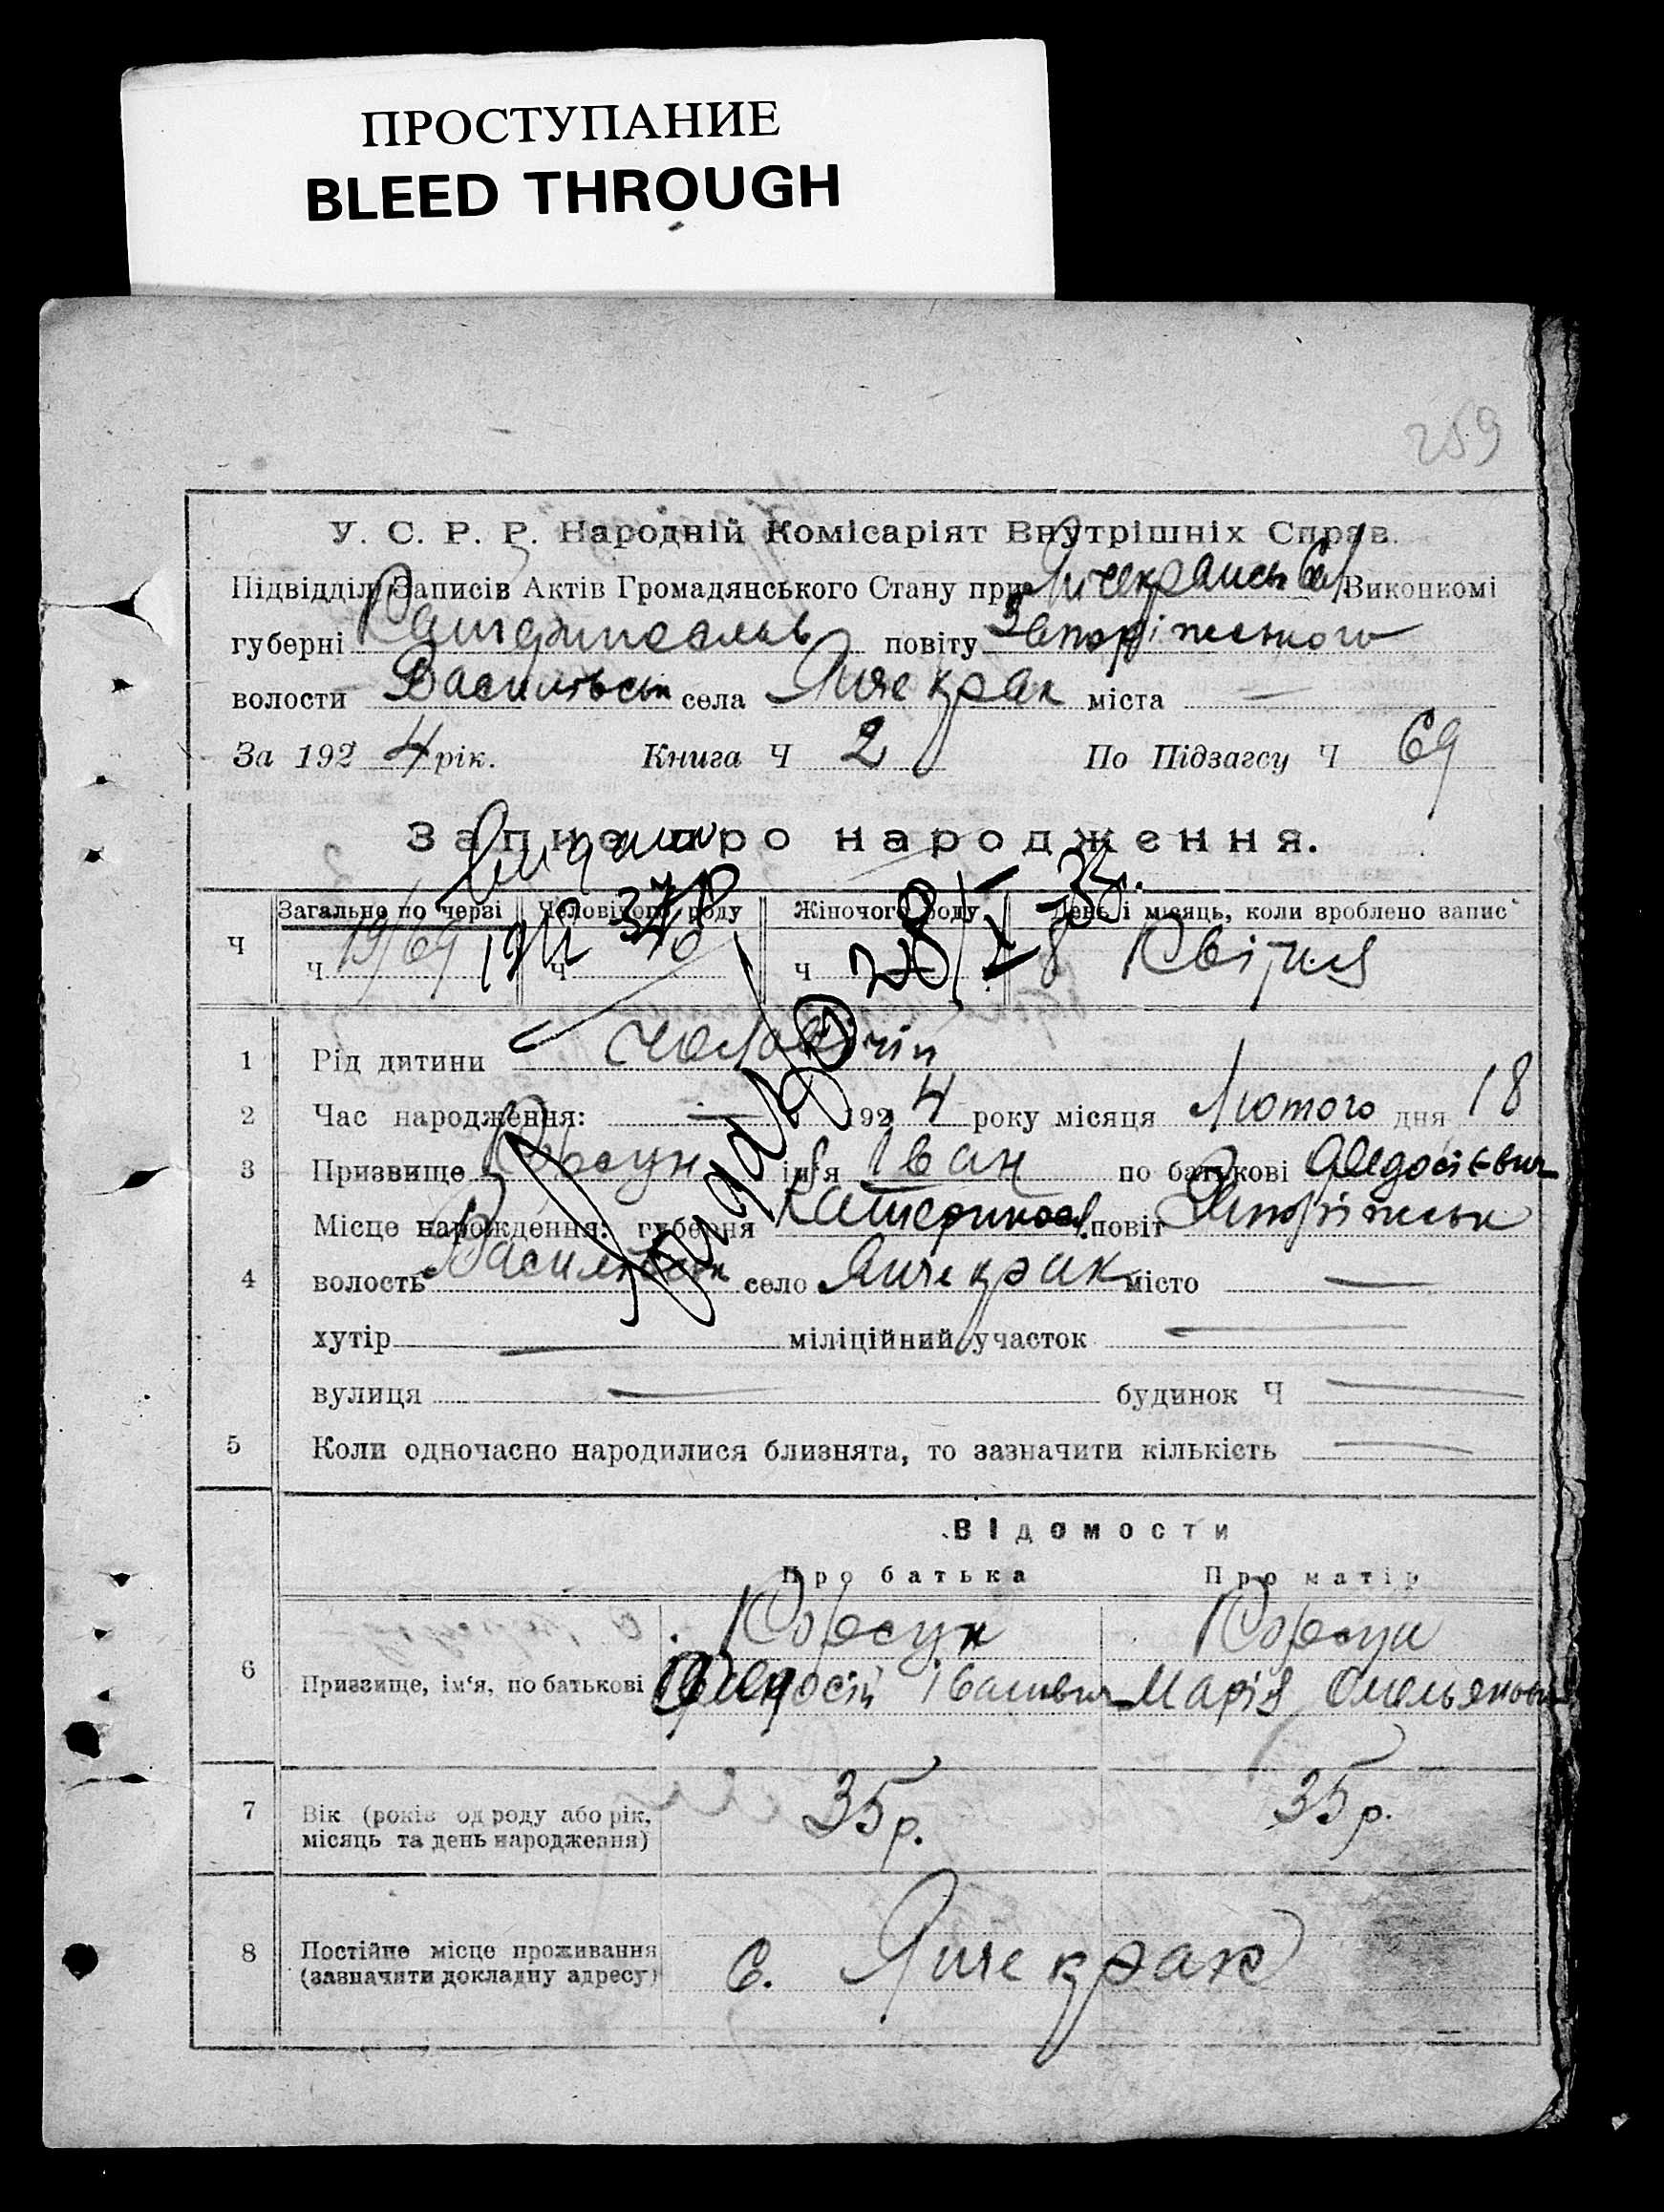 ПРОСТУПАНИЕ
BLEED THROUGH
259
У. С. Р. Р. Народній Комісаріят Внутрішніх Справ.
Підвідділ Записів Актів Громадянського Стану при Виконкомі
губерні повіту
волости Васильівськ села Янчекрак міста —
За 1924 рік. Книга Ч 2 По Підзагсу Ч 69
Запис про народження.
Загально по черзі Чоловічого роду Жіночого роду День і місяць, коли зроблено запис
Ч Ч 19/69 Ч 10 Ч 8 Квітня
1 Рід дитини чоловічій
2 Час народження: — 1924 року місяця Лютого дня 18
3 Призвище Корсун ім'я Іван по батькові Федосієвич
Місце народження: губерня Катериносл. повіт Запоріжськ
4 волость Васильівськ село Янчекрак місто —
хутір — міліційний участок —
вулиця — будинок Ч —
5 Коли одночасно народилися близнята, то зазначити кількість —
Відомости
Про батька Про матір
Корсун Корсун
6 Призвище, ім'я, по батькові Федосій Іванович Марія Омельянов
7 Вік (років од роду або рік, 35 р. 35 р.
місяць та день народження)
8 Постійне місце проживання
(зазначити докладну адресу) с. Янчекрак